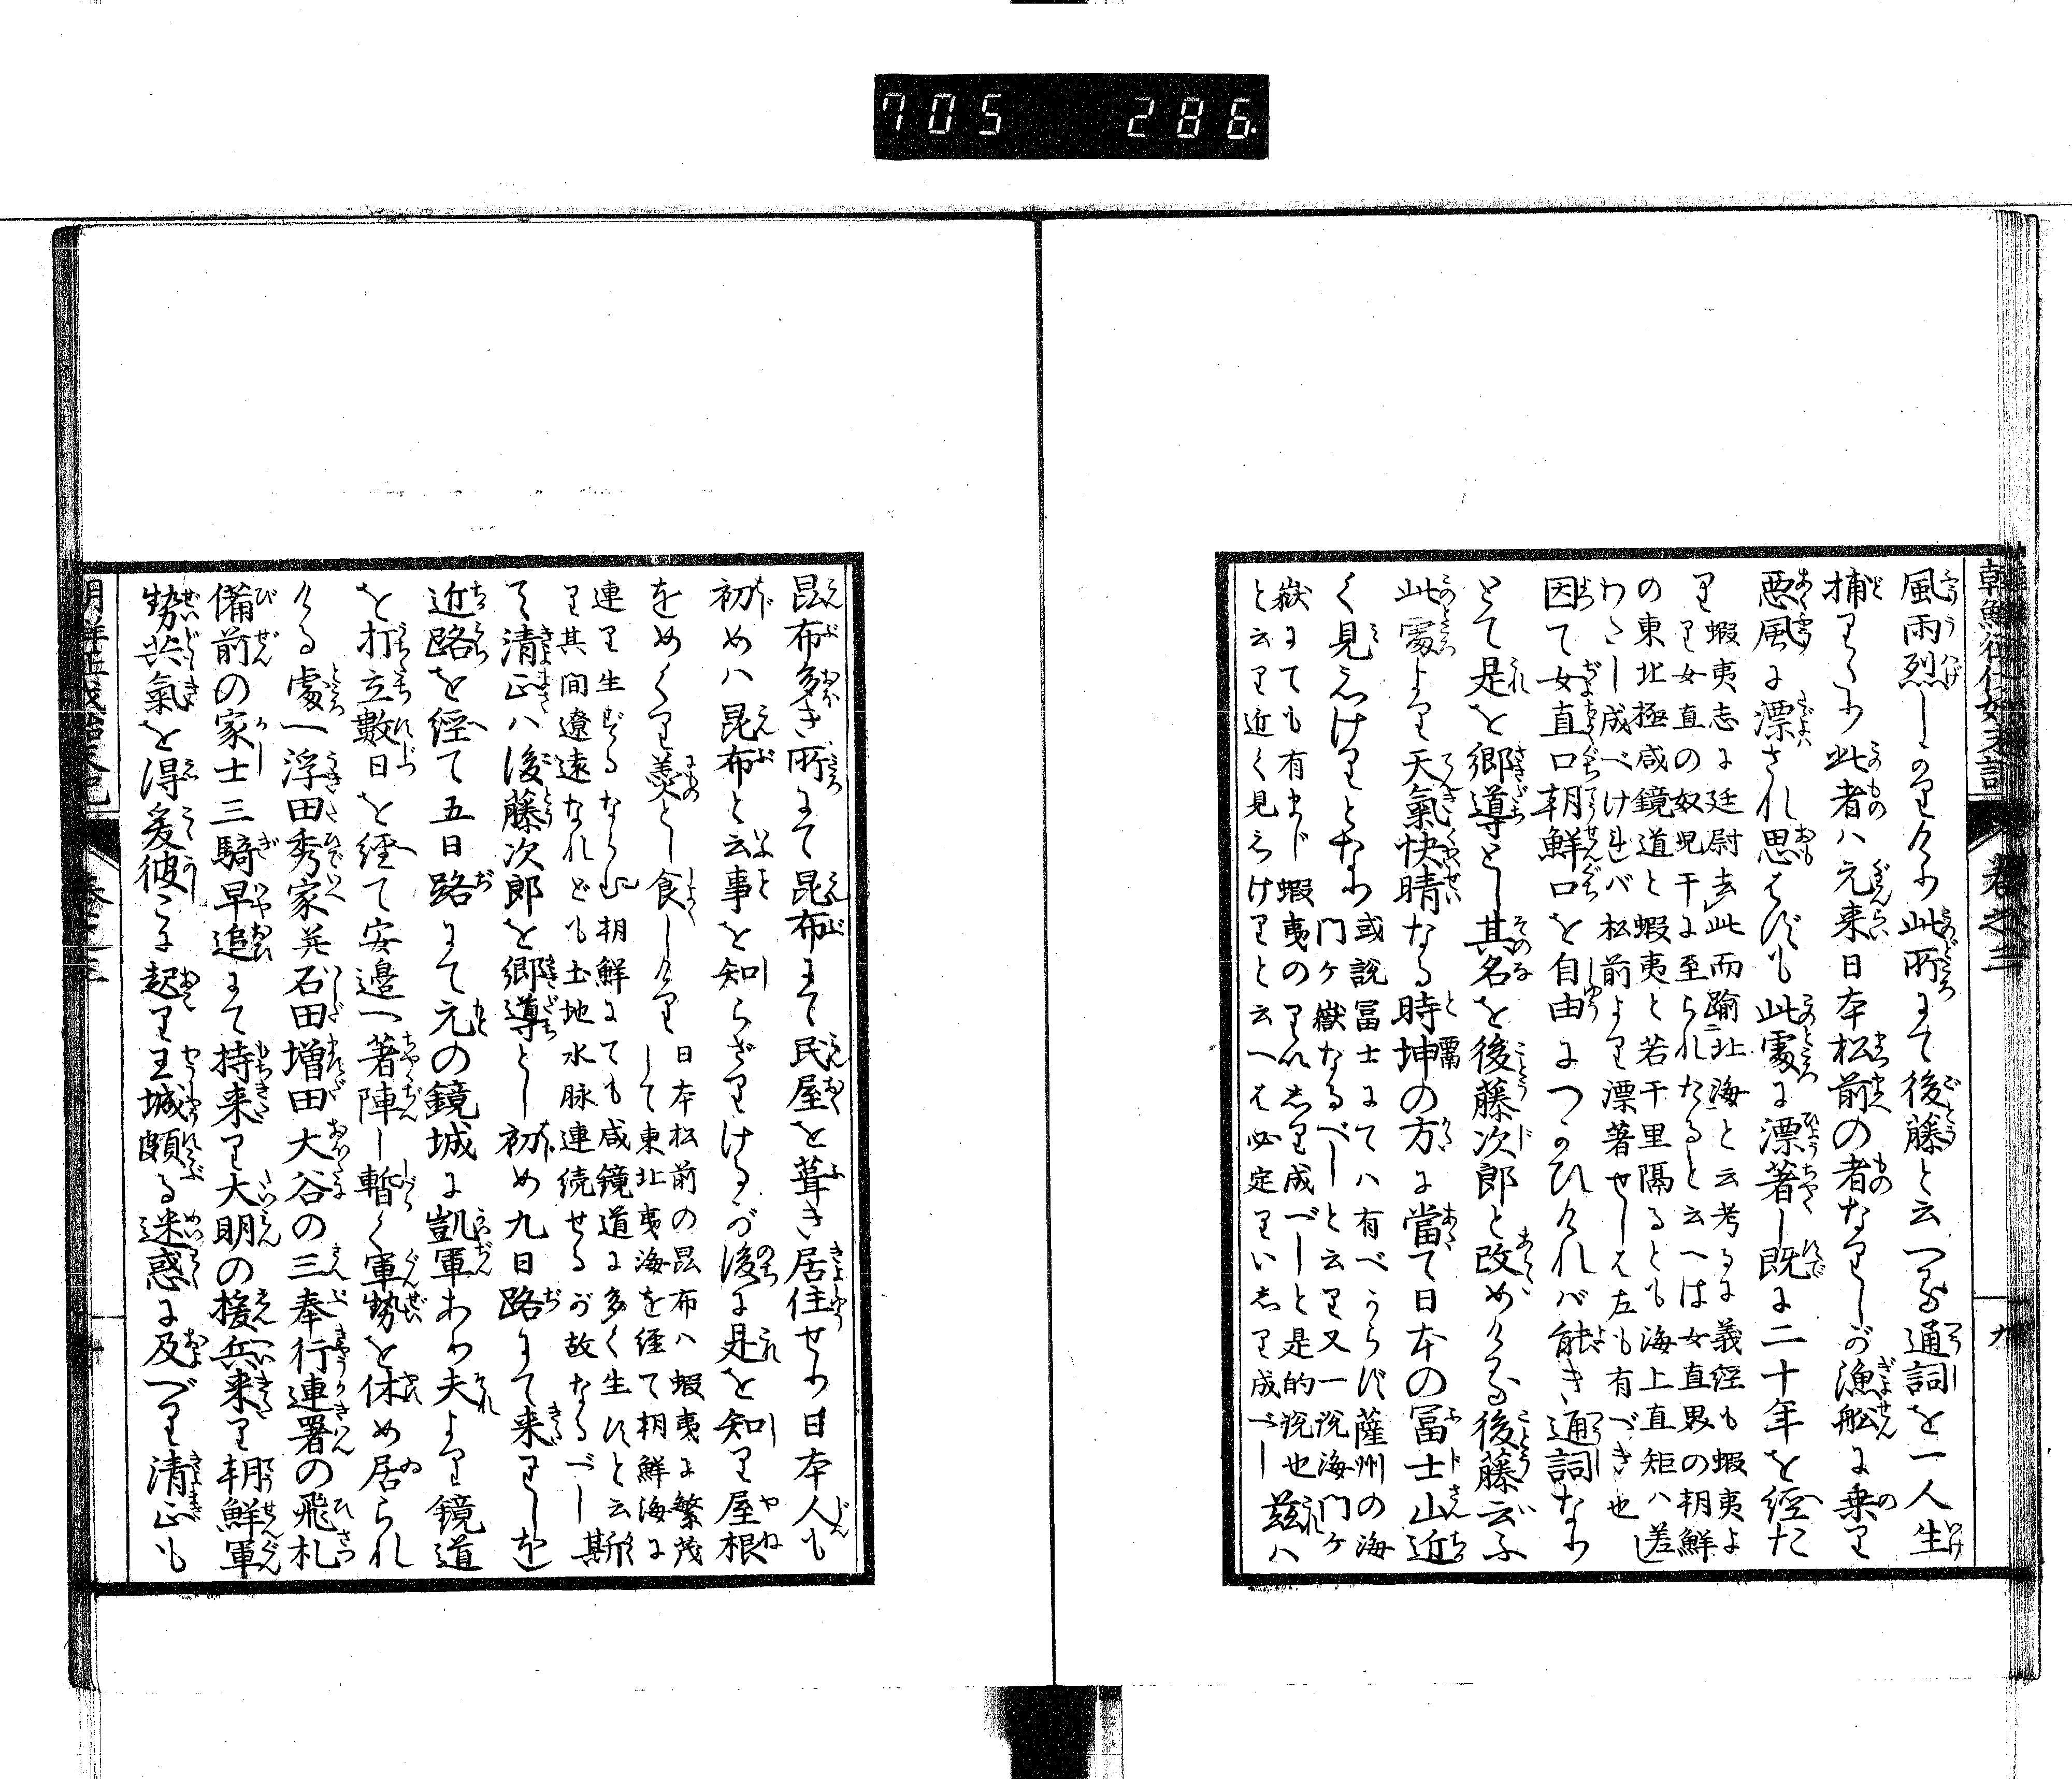 705 286
朝鮮征伐始末記
巻之三
九
風雨烈しかりけるに此所にて後藤と云へる通詞を一人生
捕りしに此者ハ元来日本松前の者なりしが漁舩に乗り
悪風に漂され思はずも此處に漂著し既に二十年を経た
り蝦夷志に廷尉去此而踰北海と云考るに義経も蝦夷よ
り女直の奴児干に至られたると云へは女直界の朝鮮
の東北極咸鏡道と蝦夷と若干里隔るとも海上直矩ハ差
わたし成べければ松前より漂著せしは左も有べき也
因て女直口朝鮮口を自由につかひければ能き通詞なり
とて是を郷導とし其名を後藤次郎と改めける後藤が云ふ
此處より天氣快晴なる時坤の方に當て日本の冨士山近
く見えけりとなり或説冨士にてハ有べからず薩州の海
門ケ嶽なるべしと云り又一説海門ケ
嶽にても有まじ蝦夷のりいしり成べしと是的説也
と云り近く見えけりと云へは必定りいしり成べし茲ハ
昆布多き所にて昆布にて民屋を葺き居住せり日本人も
初めハ昆布と云事を知らざりけるが後に是を知り屋根
をめくり羹とし食しけり日本松前の昆布ハ蝦夷に繁茂
して東北夷海を経て朝鮮海に
連り生ずるならむ朝鮮にても咸鏡道に多く生ずと云斯
り其間遼遠なれども土地水脉連続せるが故なるべし斯
て清正ハ後藤次郎を郷導とし初め九日路にて来りしを
近路を経て五日路にて元の鏡城に凱軍あり夫より鏡道
を打立數日を経て安邊へ著陣し暫く軍勢を休め居られ
ける處へ浮田秀家并石田増田大谷の三奉行連署の飛札
備前の家士三騎早追にて持来り大明の援兵来り朝鮮軍
勢共氣を得爰彼こに起り王城頗る迷惑に及べり清正も